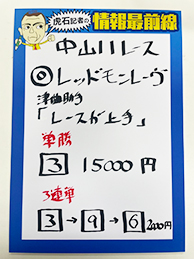 虎石記者の
情報最前線
中山11レース
◎レッドモンレーヴ
「レースが上手」
単勝
3 15000円
3連単
3→9→6 2000円